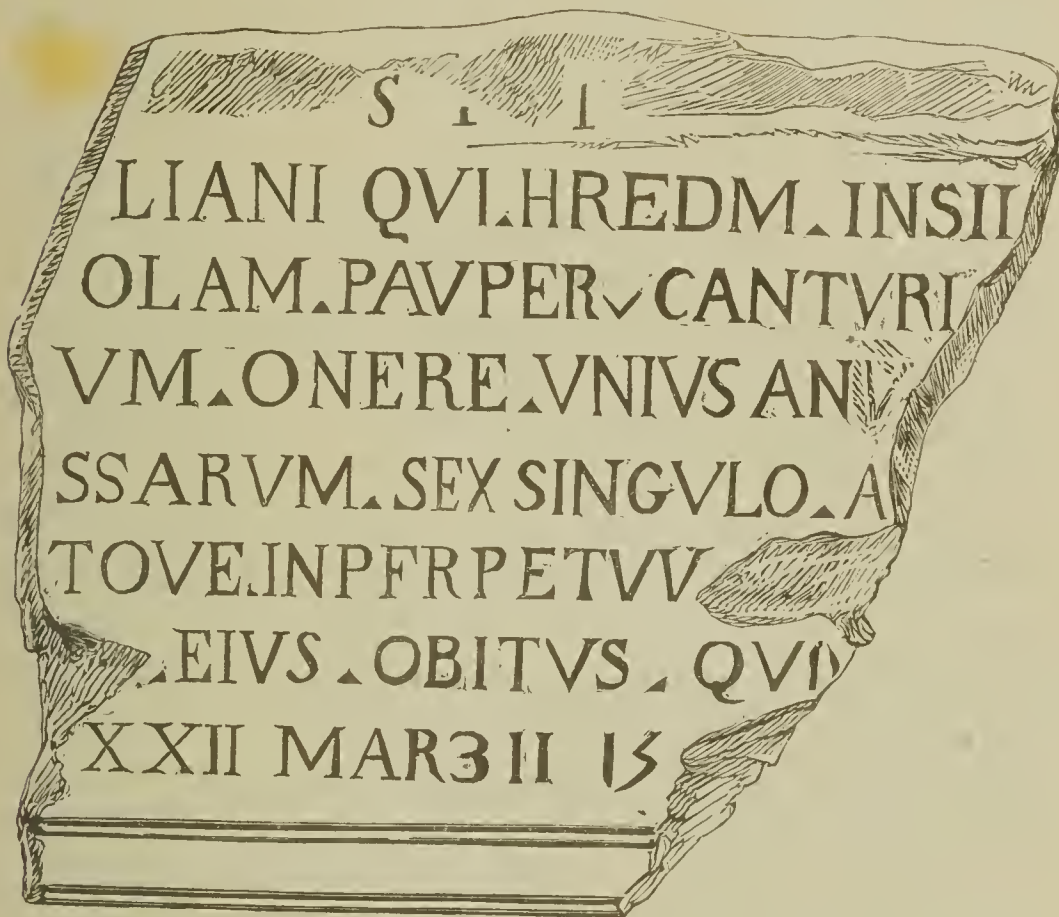 S . I
LIANI QVI.HREDM.INSII
OLAM.PAVPERVCANTVRI
VM.ONERE.VNIVS ANV
SSARVM.SEX SINGVLO.A
TOVE.INPFRPETVV
.EIVS.OBITVS.QVI
XXII MAR3II 15